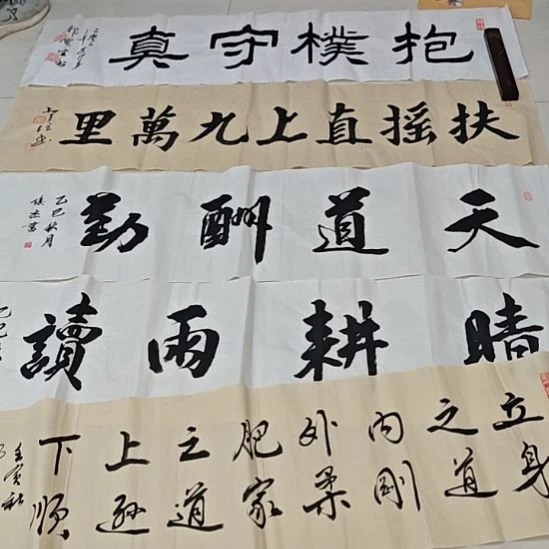 抱樸守真
扶摇直上九萬里
天道酬勤
乙巳秋月
晴耕雨讀
乙巳
立身
之道
内剛
外柔
肥家
之道
上遜
下順
壬寅秋